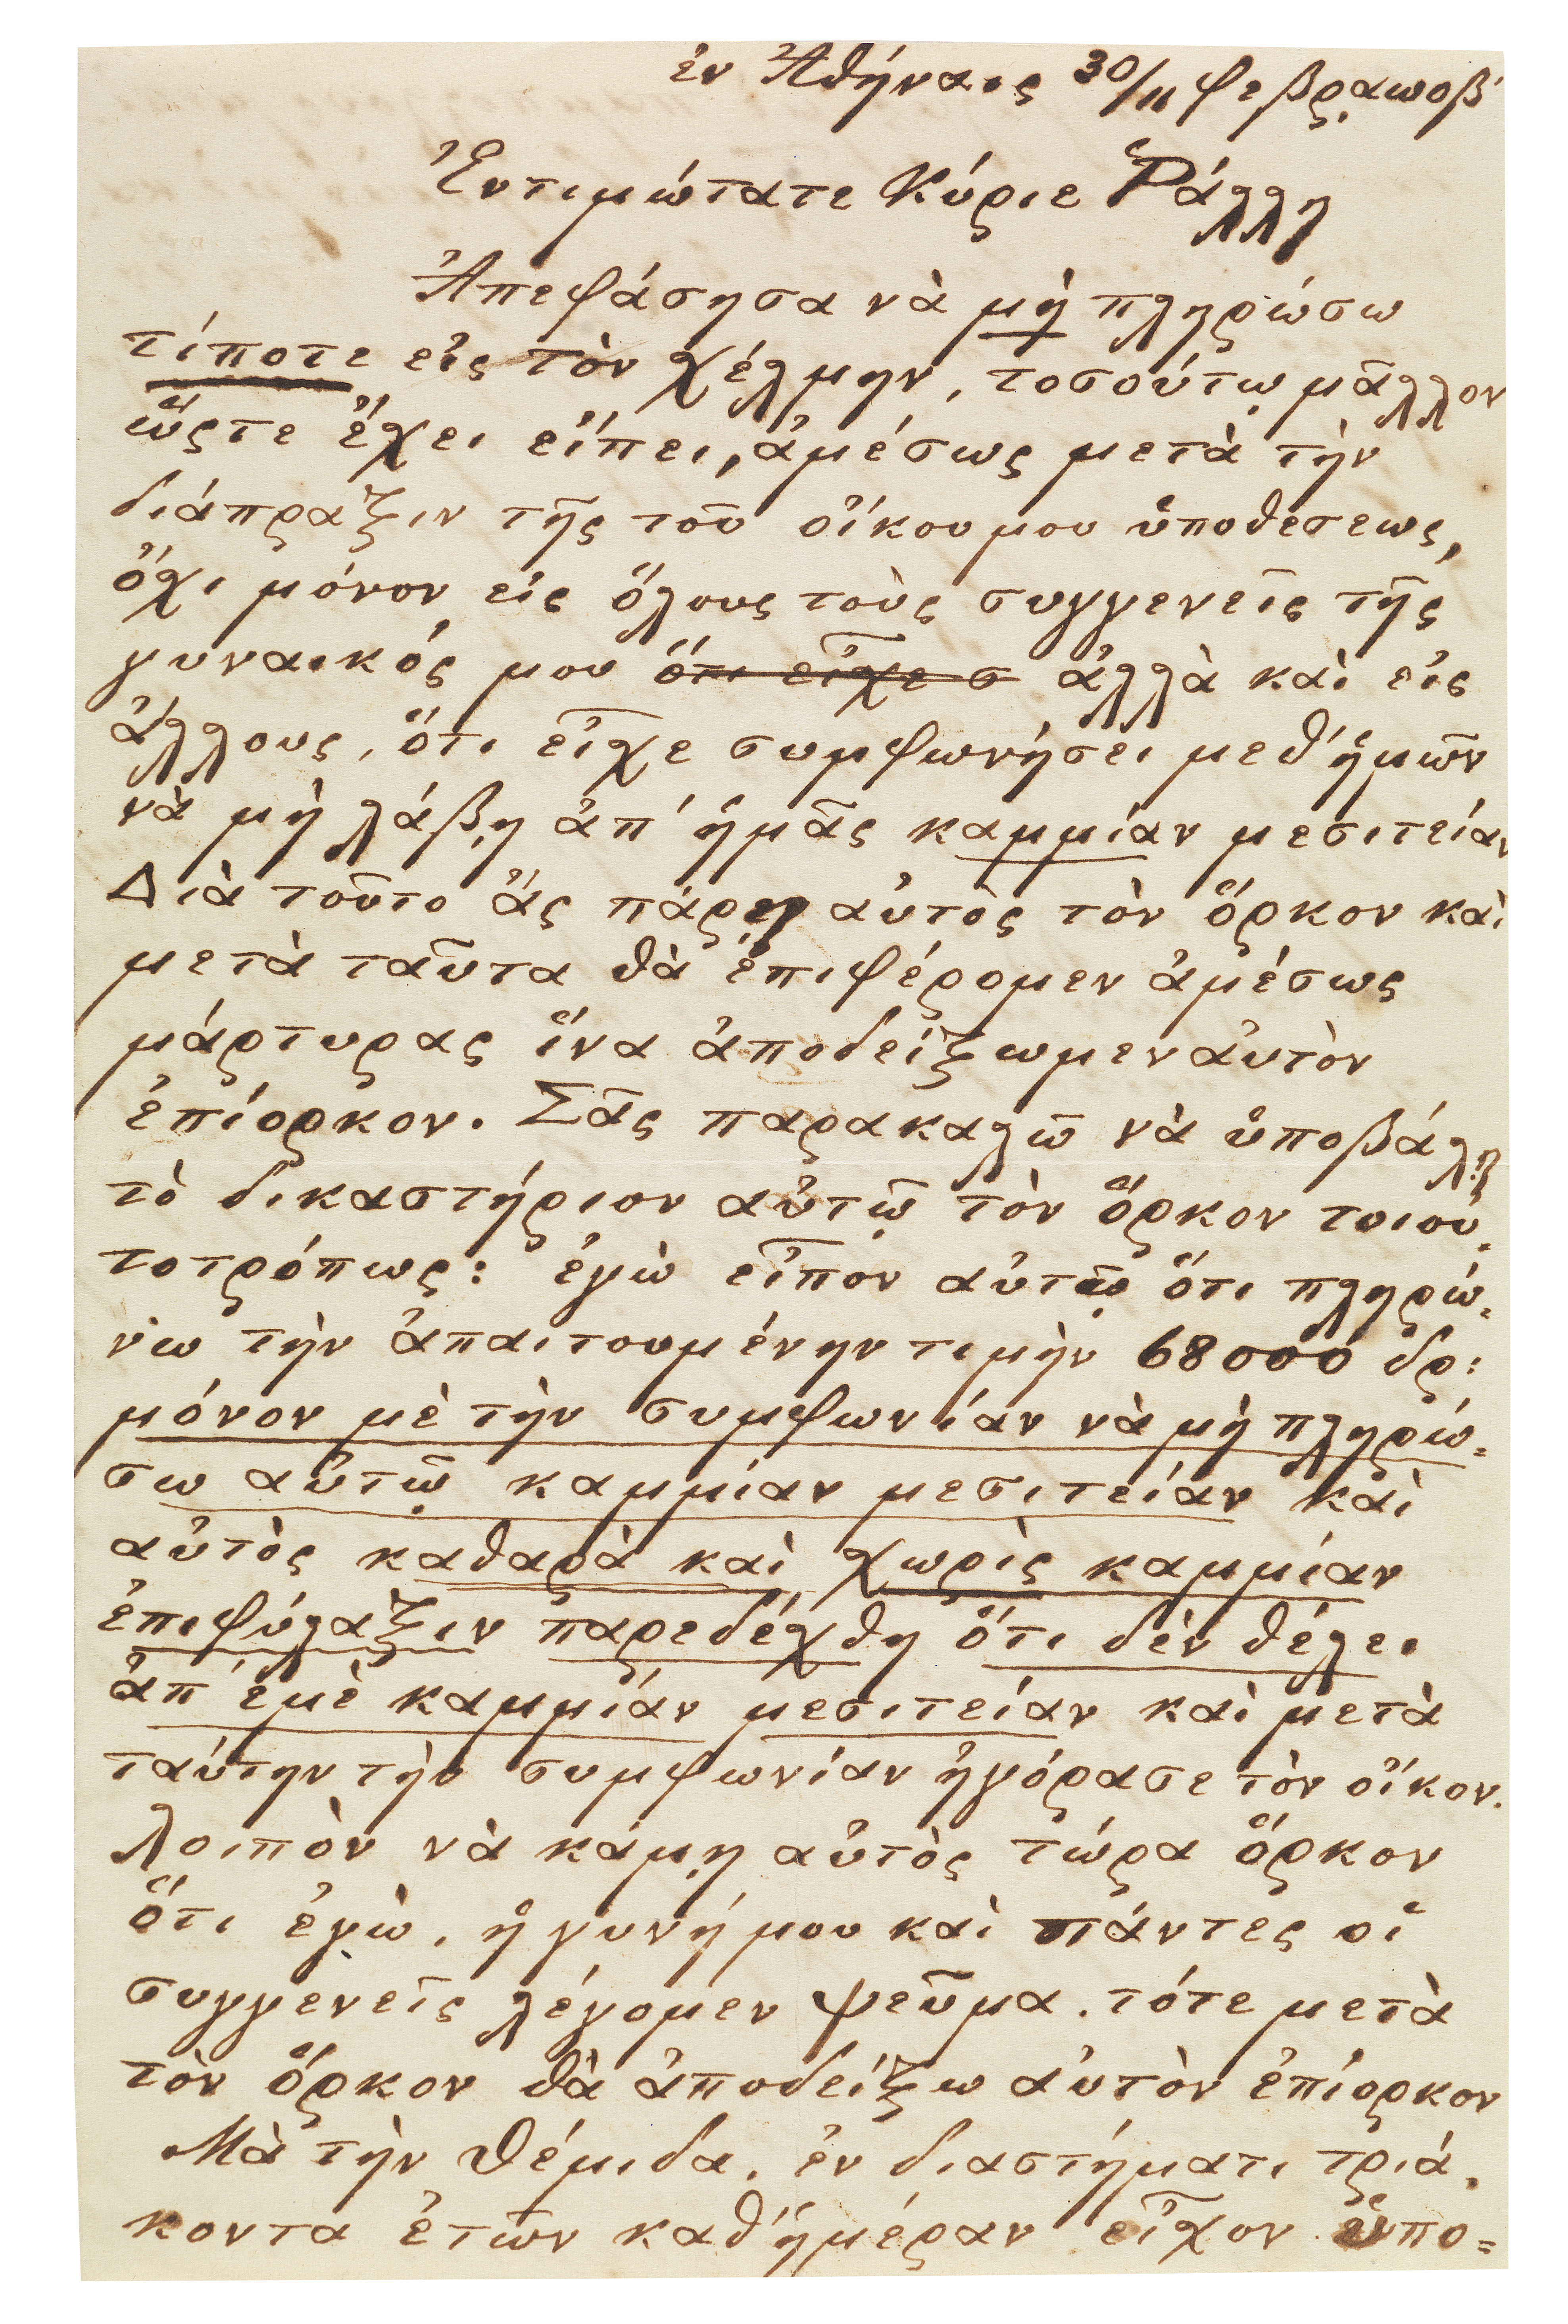 ἐν Ἀθήναις 30/11 φεβρ. αωοβ'
Ἐντιμώτατε Κύριε Ῥάλλη
Ἀπεφάσησα νὰ μὴ πληρώσω
τίποτε εἰς τὸν χέλμην, τοσούτῳ μᾶλλον
ὥςτε ἔχει εἴπει, ἀμέσως μετὰ τὴν
διάπραξιν τῆς τοῦ οἴκου μου ὑποθέσεως,
ὄχι μόνον εἰς ὅλους τοὺς συγγενεῖς τῆς
γυναικός μου ὅτι εἶχε σ ἀλλὰ καὶ εἰς
ἄλλους, ὅτι εἶχε συμφωνήσει μεθ' ἡμῶν
νὰ μὴ λάβῃ ἀπ' ἡμᾶς καμμίαν μεσιτείαν
Διὰ τοῦτο ἂς πάρῃ αὐτὸς τὸν ὅρκον καὶ
μετὰ ταῦτα θὰ ἐπιφέρομεν ἀμέσως
μάρτυρας ἵνα ἀποδείξωμεν αὐτὸν
ἐπίορκον. Σᾶς παρακαλῶ νὰ ὑποβάλῃ
τὸ δικαστήριον αὐτῷ τὸν ὅρκον τοιου-
τοτρόπως: ἐγὼ εἶπον αὐτῷ ὅτι πληρώ-
νω τὴν ἀπαιτουμένην τιμὴν 68000 δρ:
μόνον μὲ τὴν συμφωνίαν νὰ μὴ πληρώ-
σω αὐτῷ καμμίαν μεσιτείαν καὶ
αὐτὸς καθαρὰ καὶ χωρὶς καμμίαν
ἐπιφύλαξιν παρεδέχθη ὅτι δὲν θέλει
ἀπ' ἐμὲ καμμίαν μεσιτείαν καὶ μετὰ
ταύτην τὴν συμφωνίαν ἠγόρασε τὸν οἶκον.
λοιπὸν νὰ κάμῃ αὐτὸς τώρα ὅρκον
ὅτι ἐγὼ, ἡ γυνή μου καὶ πάντες οἱ
συγγενεῖς λέγομεν ψεῦμα. τότε μετὰ
τὸν ὅρκον θὰ ἀποδείξω αὐτὸν ἐπίορκον
Μὰ τὴν Θέμιδα. ἐν διαστήματι τριά-
κοντα ἐτῶν καθ' ἡμέραν εἶχον ὑπο=